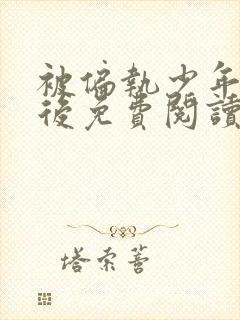 被偏執少年
後免費閱讀
塔索薈